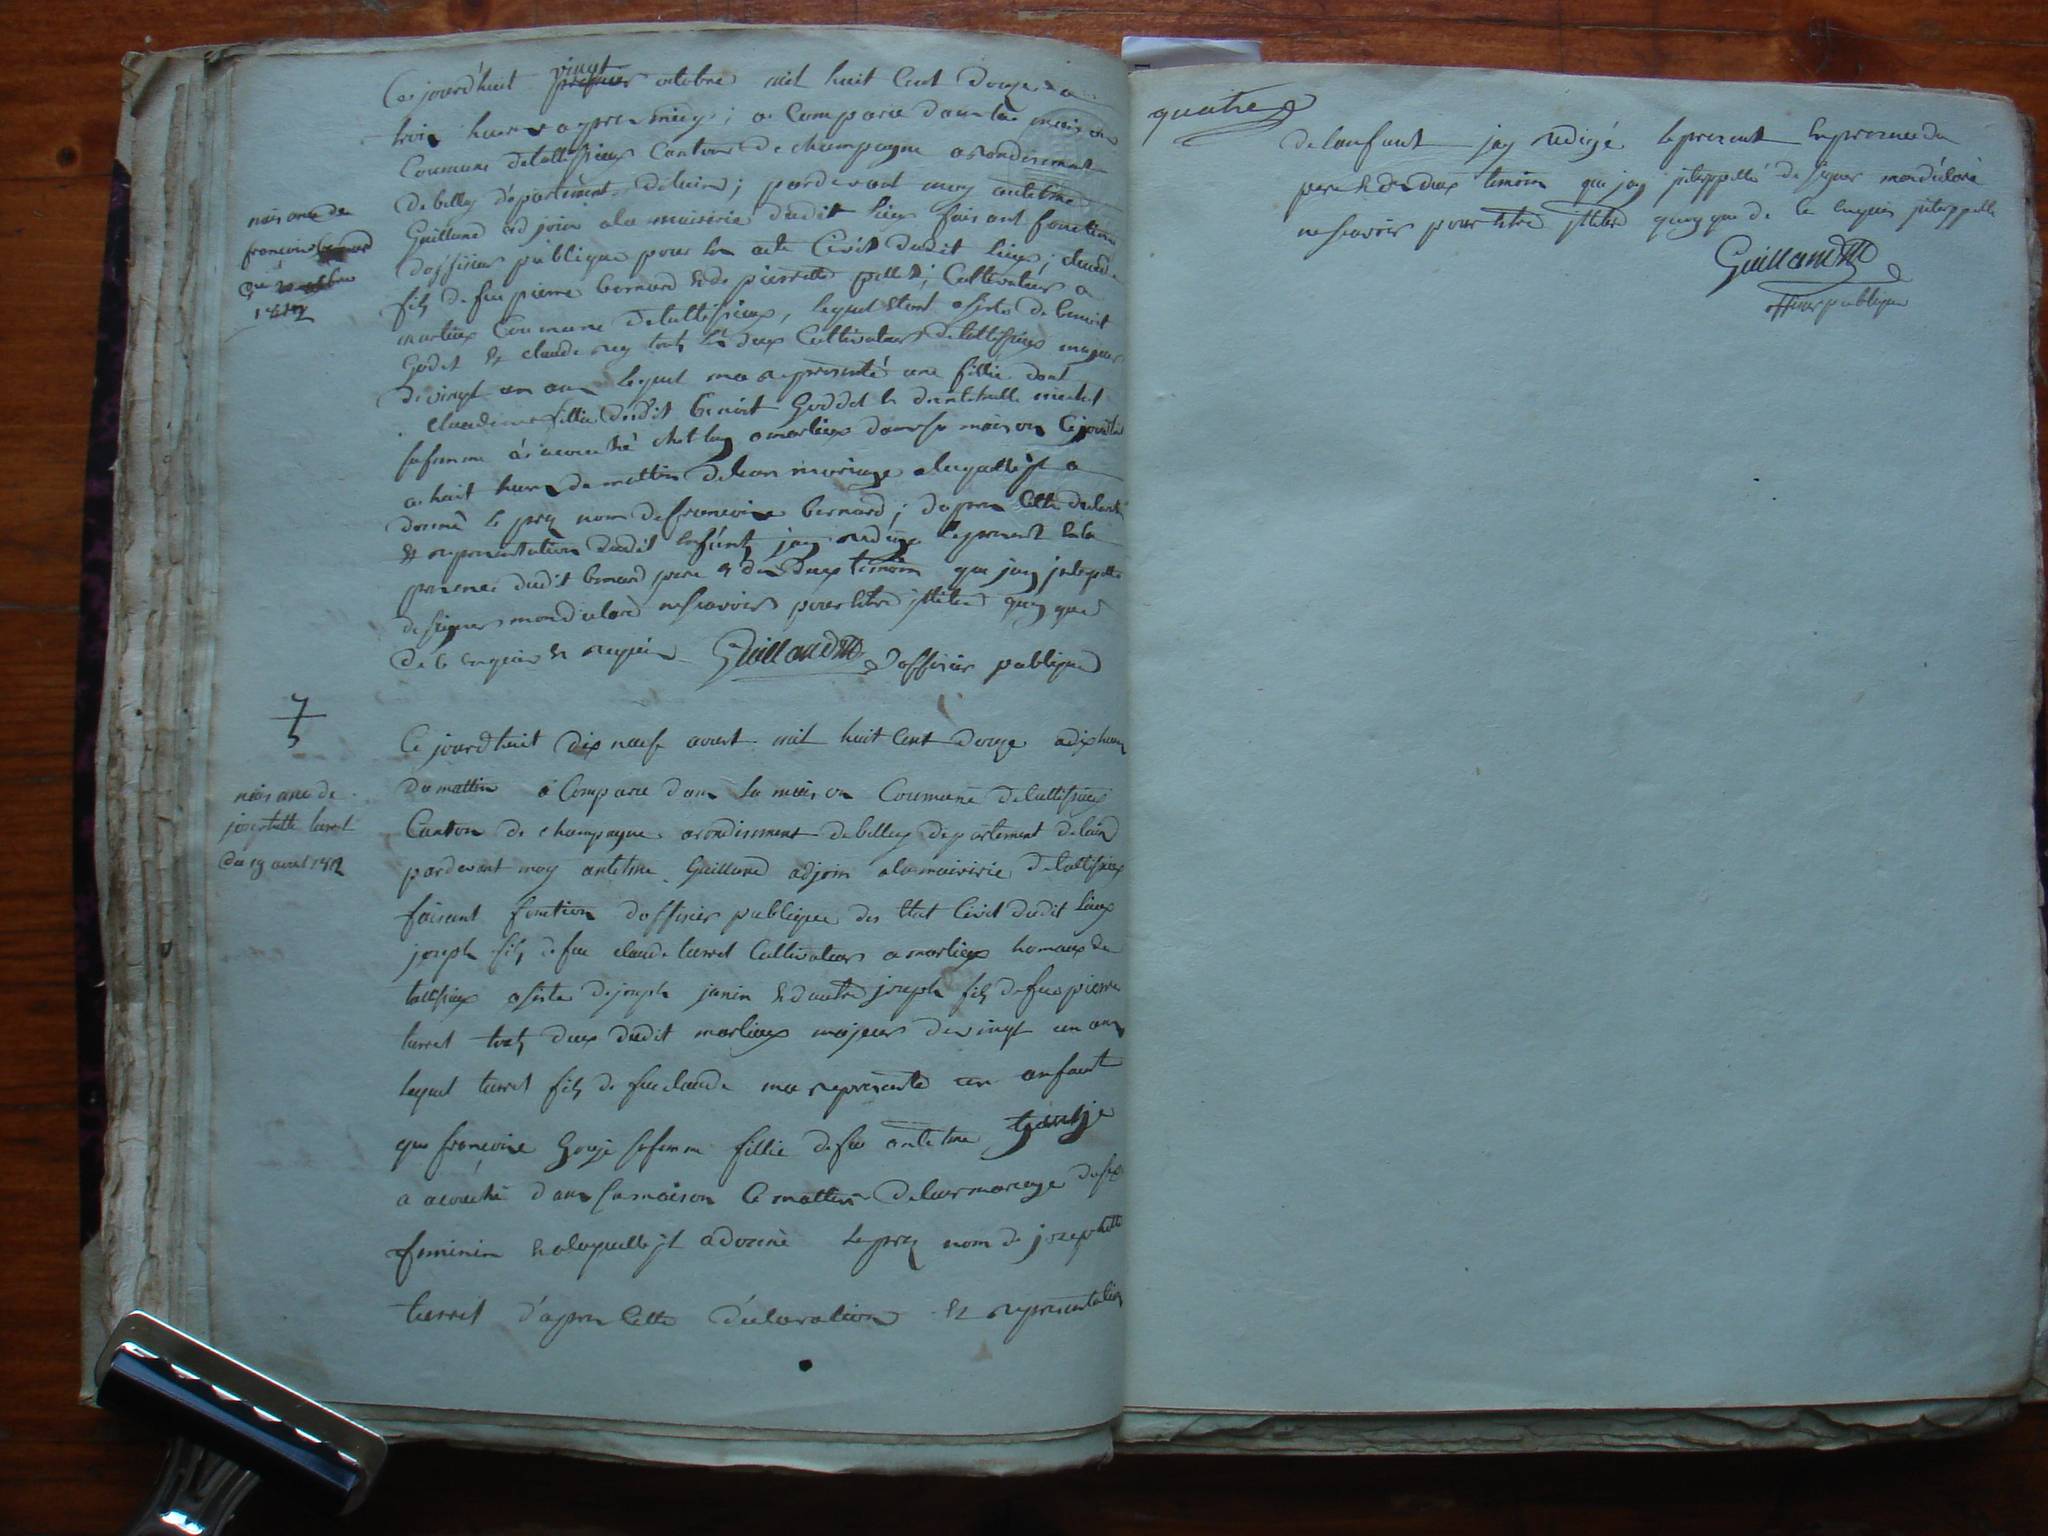 Ce jourd'huit vingt octobre mil huit Cent Douze a
trois heures apres midy; a Comparu dans la maison
Commune de Lattissieux Canton de champagne arondisement
de belley département de lain; pardevant moy antelme
Guilland adjoin a la mairie dudit Lieux faisant fonction
dofficier publique pour les acte Civil dudit Lieux; claude
fils de feu pierre bernard & de pierrette; Cultivateur a
marlieux Commune de lattissieux, lequel etant asisté de benoit
Godet & claude rey touts les deux Cultivateurs de lattissieux majeurs
de vingt un ans lequel ma representé une fillie dont
Claudine fillie dudit benoit Goddet
sa femme a acouché chet luy a marlieux dans sa maison Ce jourdhui
a huit heures du mattin de leur mariage a laquelle jl a
donné le prez nom de francoise bernard; dapres Cette declaration
& representation dudit Enfant, jay redigé le present En la
presence dudit bernard pere & des Deux temoins que jay jnterpellé
de signer mon declaré ne scavoir pour etre jlliteré quoy que
de Ce enquis & requis Guilland d'officier publique
naisance de
francoise bernard
du 20 octobre
1812
Ce jourdhuit dix neufs avril mil huit Cent douze a dix heures
du mattin a Comparu dans la maison Commune de lattissieux
Canton de champagne arondisement de belley departement de lain
pardevant moy antelme Guilland adjoin a la mairie de lattissieux
faisant fonction dofficier publique des Etat Civil dudit Lieux
joseph fils de feu claude turret Cultivateur a marlieux hamaux de
lattissieux asisté de joseph janin & dautre joseph fils de feu pierre
turret touts deux dudit marlieux majeurs de vingt un ans
lequel turret fils de feu claude ma representé un anfant
que francoise Gouje sa femme fillie de feu antelme Gouje
a acouché dans sa maison Ce mattin de leur mariage du sex
feminin & a laquelle jl a donné le prez nom de josephette
turret d'apres Cette déclaration & representation
naisance de
josephette turret
du 19 avril 1812
quatre
de lanfant jay redigé le present En presence du
pere & des deux temoins que jay jnterppellé de signer mon déclaré
ne scavoir pour etre jlliteré quoy que de Ce enquis jnterppellé
Guilland
officier publique